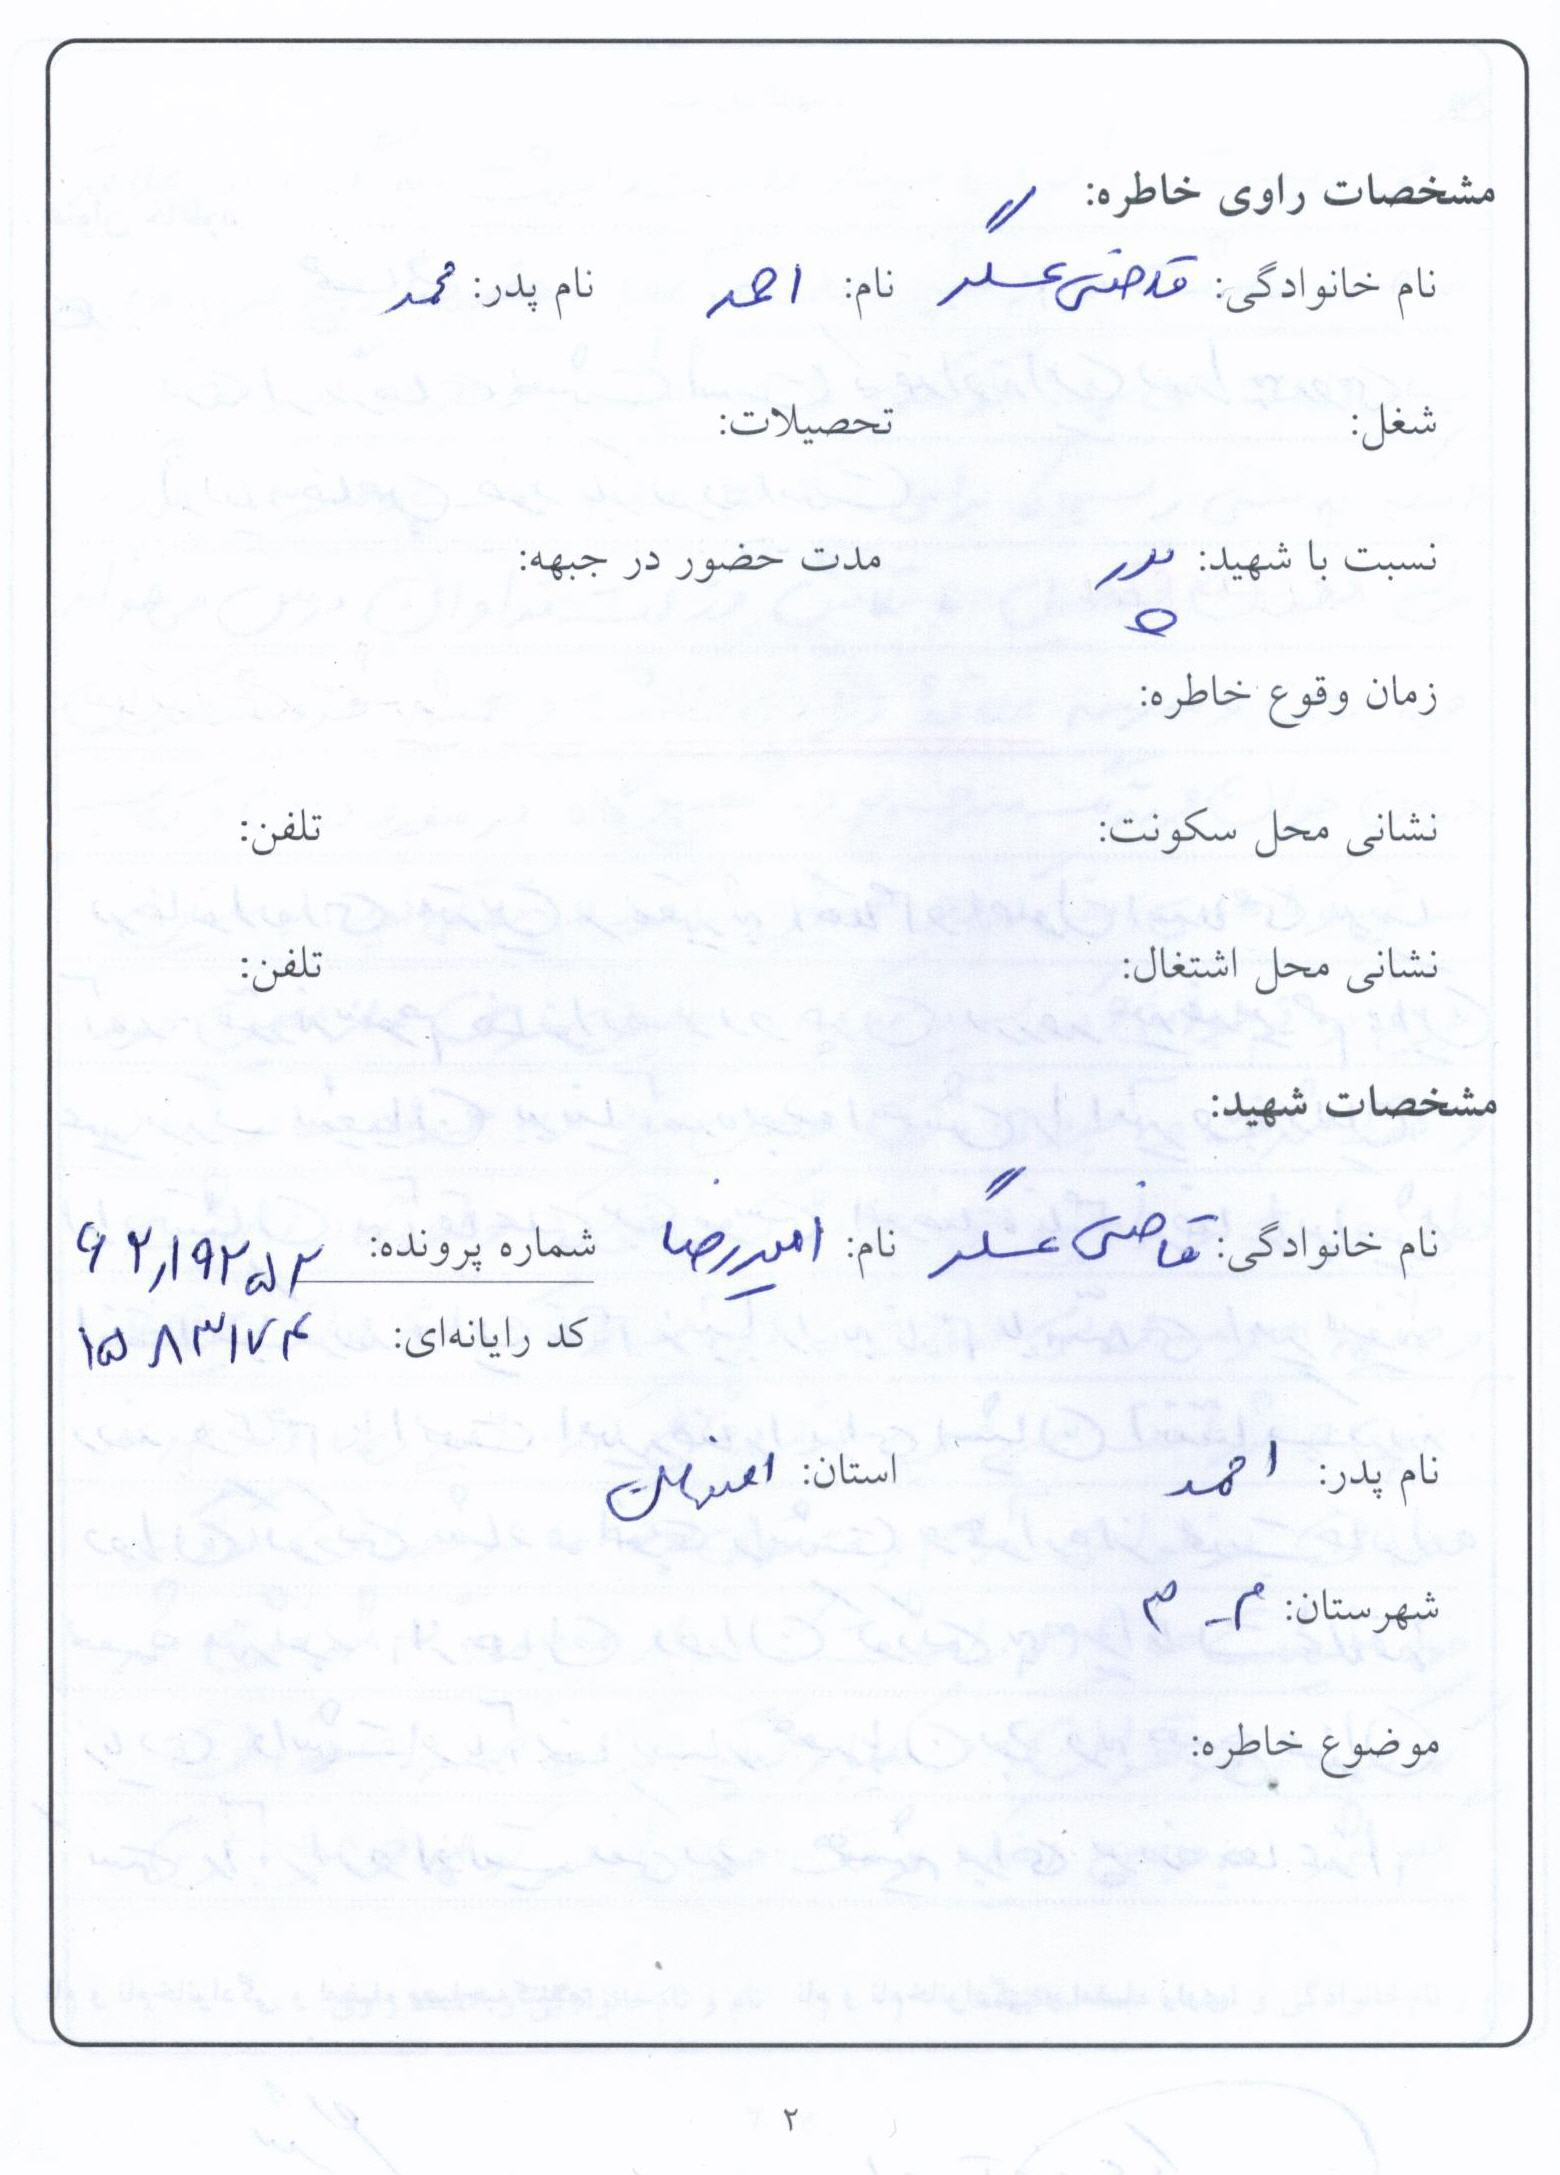 مشخصات راوی خاطره:
نام خانوادگی: قاضی عسگر نام: احمد نام پدر: محمد
شغل: تحصیلات:
نسبت با شهید: پدر مدت حضور در جبهه:
زمان وقوع خاطره:
نشانی محل سکونت: تلفن:
نشانی محل اشتغال: تلفن:
مشخصات شهید:
نام خانوادگی: قاضی عسگر نام: امیررضا شماره پرونده: ۶۲٫۱۹۲۵۲
کد رایانه‌ای: ۱۵۸۳۱۷۴
نام پدر: احمد استان: اصفهان
شهرستان: م_۳
موضوع خاطره:
۲